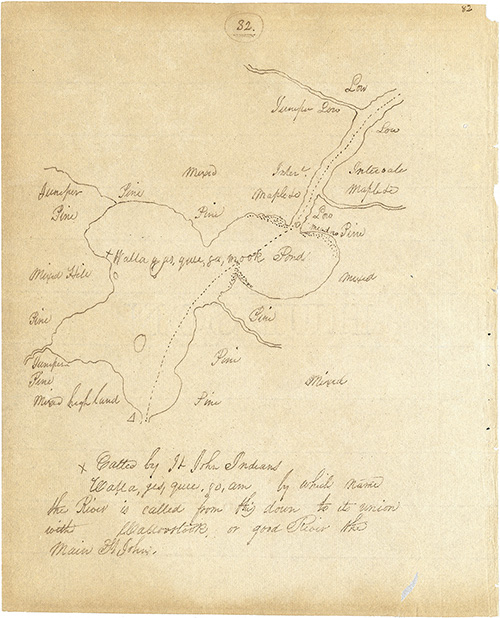 82
32.
Low
Juniper Low
Low
Mixed
Inter.
Intervale
Juniper
Pine
Maple &c
Maple &c
Pine
Pine
Low
Pine
x Walla, ges, quee, ga, mook Pond
Mixed Hill
Mixed
Pine
Pine
Juniper
Pine
Pine
Mixed
Mixed highland
Pine
x Called by St John Indians
Walla, ges, quee, go, am by which name
the River is called from this down to its union
with or good River the
Main St John.